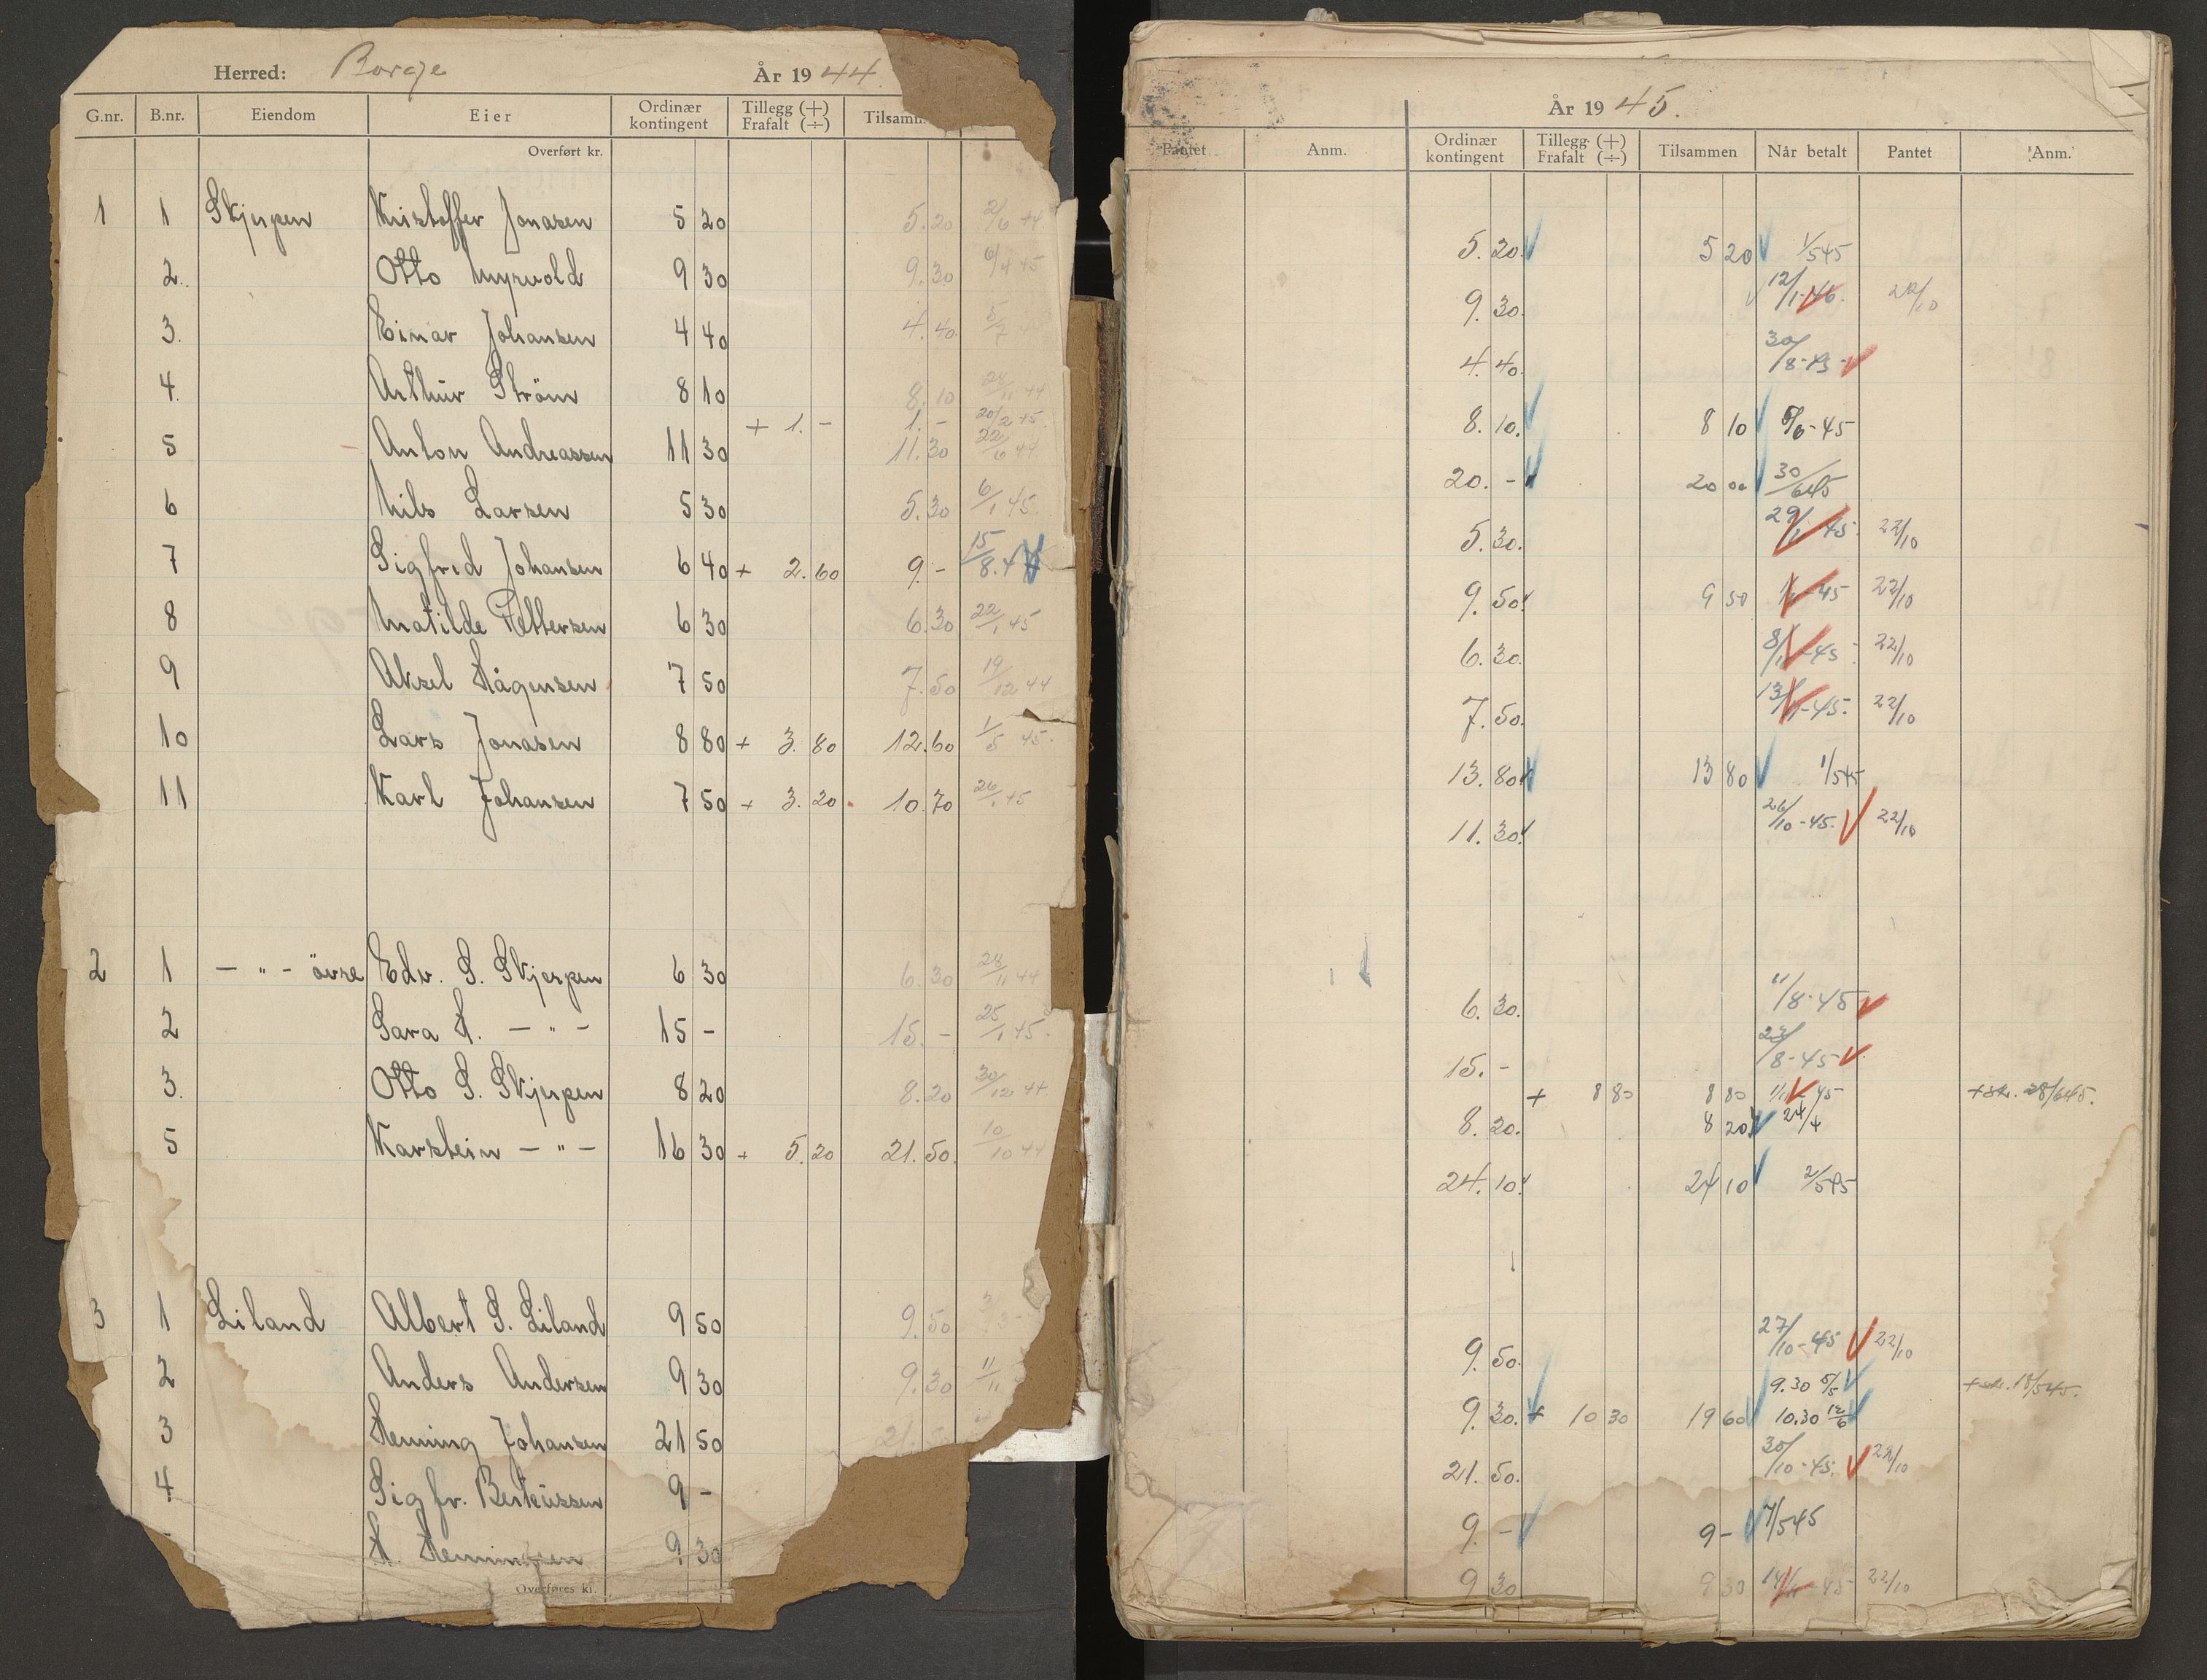 Herred: Borge År 1944
G.nr. B.nr. Eiendom Eier Ordinær kontingent Tillegg (+) Frafalt (÷) Tilsamm
Overført kr.
1 1 Skjerpen Kristoffer Jonasen 5 20 5.20 2/6 44
2. Otto Myrvold 9 30 9.30
3. Einar Johansen 4 40 4.40
4. Arthur Strøm 8 10 8.10 28/11 44
+ 1. - 1. - 20/2 45.
5 Anton Andreassen 11 30 11.30 22/6 44
6 Nils Larsen 5 30 5.30 6/1 45.
7 Sigfred Johansen 6 40 + 2.60 9.- 15/8.44
8 Matilde Pettersen 6 30 6.30 22/1 45
9 Aksel Hågensen 7 50 7.50 19/12 44
10 Lars Jonasen 8 80 + 3.80 12.60 1/5 45.
11 Karl Johansen 7 50 + 3.20 10.70 26/1 45
2 1 - " - övre Edv. S. Skjerpen 6 30 6.30 28/11 44
2 Sara H. - " - 15 - 15. - 25/1 45.
3. Otto S. Skjerpen 8 20 8.20 30/12 44
5 Karstein - " - 16 30 + 5.20 21.50. 10/10 44
3 1 Liland Albert S. Liland 9 50 9.50
2 Anders Andersen 9 30 9.30 11/11
3 Henning Johansen 21 50 21.
4 Sigfr. Berteussen 9 -
H. Henningsen 9 30
Overføres kr.
År 1945.
Pantet Anm. Ordinær kontingent Tillegg (+) Frafalt (÷) Tilsammen Når betalt Pantet Anm.
5.20 5 20 1/5 45
9.30. 12/1-46. 22/10
4.40. 30/8-45
8.10. 8 10 6/6-45
20. - 20 00 30/6 45
5.30. 29/1-45. 22/10
9.50. 9 50 1/11-45 22/10
6.30. 8/11-45 22/10
7.50. 13/11-45. 22/10
13.80 13 80 1/5 45
11.30. 26/10-45. 22/10
6.30. 11/8-45
15. - 23/8-45
+ 8 80 8 80 1/11-45 + sk. 28/6 45.
8.20. 8 20 24/4
24.10. 24 10 2/5 45
9.50. 27/10-45 22/10
9.30 5/5 + sk. 18/5 45.
9.30. + 10 30 19 60 10.30 12/6
21.50. 30/10-45. 22/10
9. - 9 - 7/5 45
9 30 9 30 14/11-45 22/10